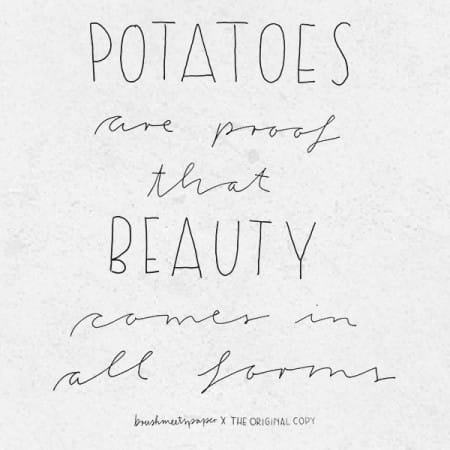 POTATOES
are proof
that
BEAUTY
comes in
all forms
brushmeetspaper X THE ORIGINAL COPY